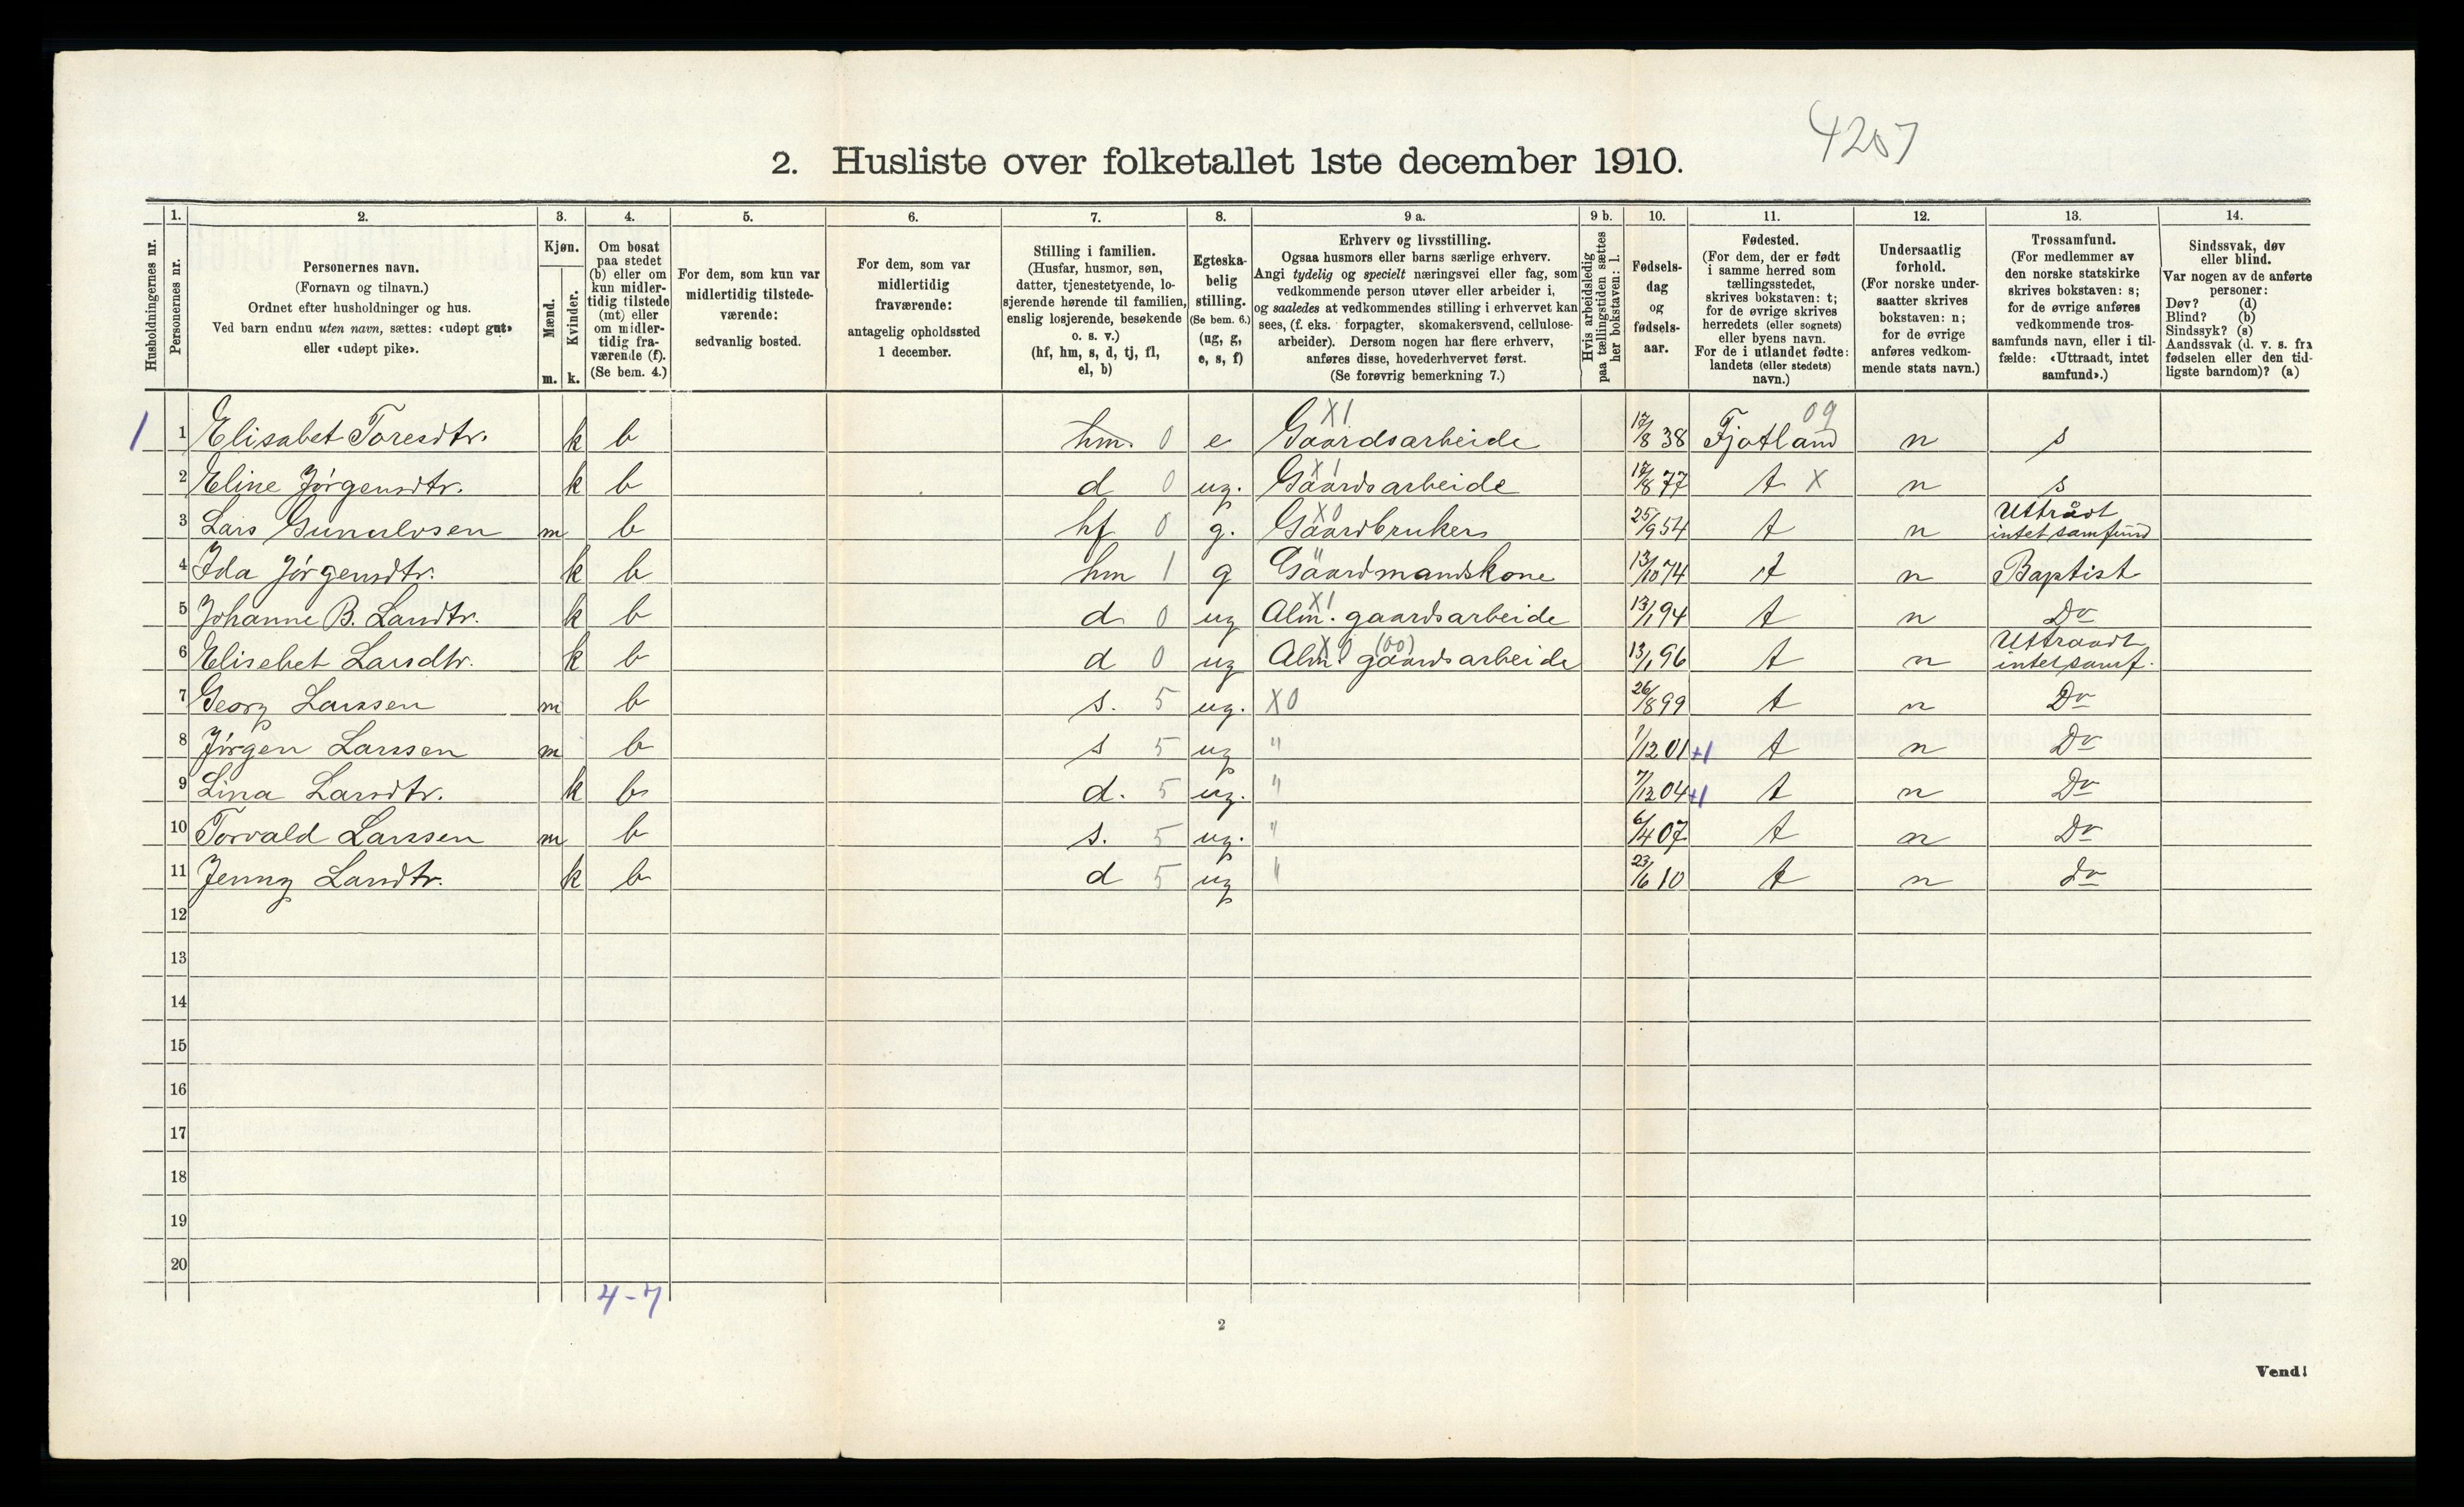 4207
2. Husliste over folketallet 1ste december 1910.
Husholdningernes nr.
1.
Personernes nr.
2.
Personernes navn.
(Fornavn og tilnavn.)
Ordnet efter husholdninger og hus.
Ved barn endnu uten navn, sættes: «udøpt gut»
eller «udøpt pike».
3.
Kjøn.
Mænd.
m.
Kvinder.
k.
4.
Om bosat
paa stedet
(b) eller om
kun midler-
tidig tilstede
(mt) eller
om midler-
tidig fra-
værende (f).
(Se bem. 4.)
5.
For dem, som kun var
midlertidig tilstede-
værende:
sedvanlig bosted.
6.
For dem, som var
midlertidig
fraværende:
antagelig opholdssted
1 december.
7.
Stilling i familien.
(Husfar, husmor, søn,
datter, tjenestetyende, lo-
sjerende hørende til familien,
enslig losjerende, besøkende
o. s. v.)
(hf, hm, s, d, tj, fl,
el, b)
8.
Egteska-
belig
stilling.
(Se bem. 6.)
(ug, g,
e, s, f)
9 a.
Erhverv og livsstilling.
Ogsaa husmors eller barns særlige erhverv.
Angi tydelig og specielt næringsvei eller fag, som
vedkommende person utøver eller arbeider i,
og saaledes at vedkommendes stilling i erhvervet kan
sees, (f. eks. forpagter, skomakersvend, cellulose-
arbeider). Dersom nogen har flere erhverv,
anføres disse, hovederhvervet først.
(Se forøvrig bemerkning 7.)
9 b.
Hvis arbeidsledig
paa tællingstiden sættes
her bokstaven: l.
10.
Fødsels-
dag
og
fødsels-
aar.
11.
Fødested.
(For dem, der er født
i samme herred som
tællingsstedet,
skrives bokstaven: t;
for de øvrige skrives
herredets (eller sognets)
eller byens navn.
For de i utlandet fødte:
landets (eller stedets)
navn.)
12.
Undersaatlig
forhold.
(For norske under-
saatter skrives
bokstaven: n;
for de øvrige
anføres vedkom-
mende stats navn.)
13.
Trossamfund.
(For medlemmer av
den norske statskirke
skrives bokstaven: s;
for de øvrige anføres
vedkommende tros-
samfunds navn, eller i til-
fælde: «Uttraadt, intet
samfund».)
14.
Sindssvak, døv
eller blind.
Var nogen av de anførte
personer:
Døv? (d)
Blind? (b)
Sindssyk? (s)
Aandssvak (d. v. s. fra
fødselen eller den tid-
ligste barndom)? (a)
X1 09
1 1 Elisabet Toresdtr. k b hm. 0 e Gaardsarbeide 17/8 38 Fjotland n s
X1
2 Eline Jørgensdtr. k b d 0 ug. Gaardsarbeide 17/8 77 t X n s
X0 Uttrådt
3 Lars Gunulvsen m b hf 0 g. Gaardbruker 25/9 54 t n intet samfund
"
4 Ida Jørgensdtr. k b hm 1 g Gaardmandskone 13/10 74 t n Baptist
X1
5 Johanne B. Larsdtr. k b d 0 ug Alm. gaardsarbeide 13/1 94 t n Do
X0 (00) Uttraadt
6 Elisebet Larsdtr. k b d 0 ug Alm. gaardsarbeide 13/1 96 t n intet samf.
7 Georg Larssen m b s. 5 ug. X0 26/8 99 t n Do
8 Jørgen Larssen m b s 5 ug " 1/12 01 +1 t n Do
9 Lina Larsdtr. k b d. 5 ug. " 7/12 04 +1 t n Do
10 Torvald Larssen m b s. 5 ug. " 6/4 07 t n Do
11 Jenny Larsdtr. k b d 5 ug " 23/6 10 t n do
12
13
14
15
16
17
18
19
20
4-7
2
Vend!